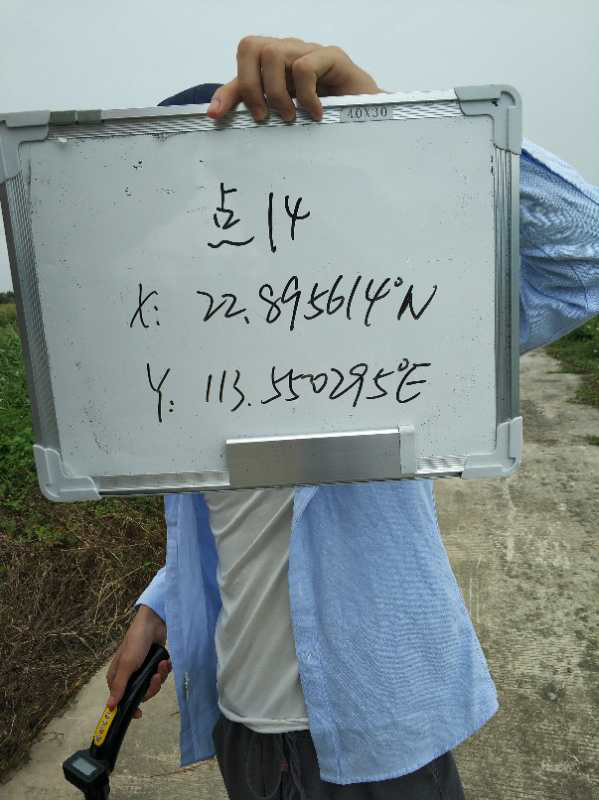 40X30
点14
X: 22.895614°N
Y: 113.550295°E